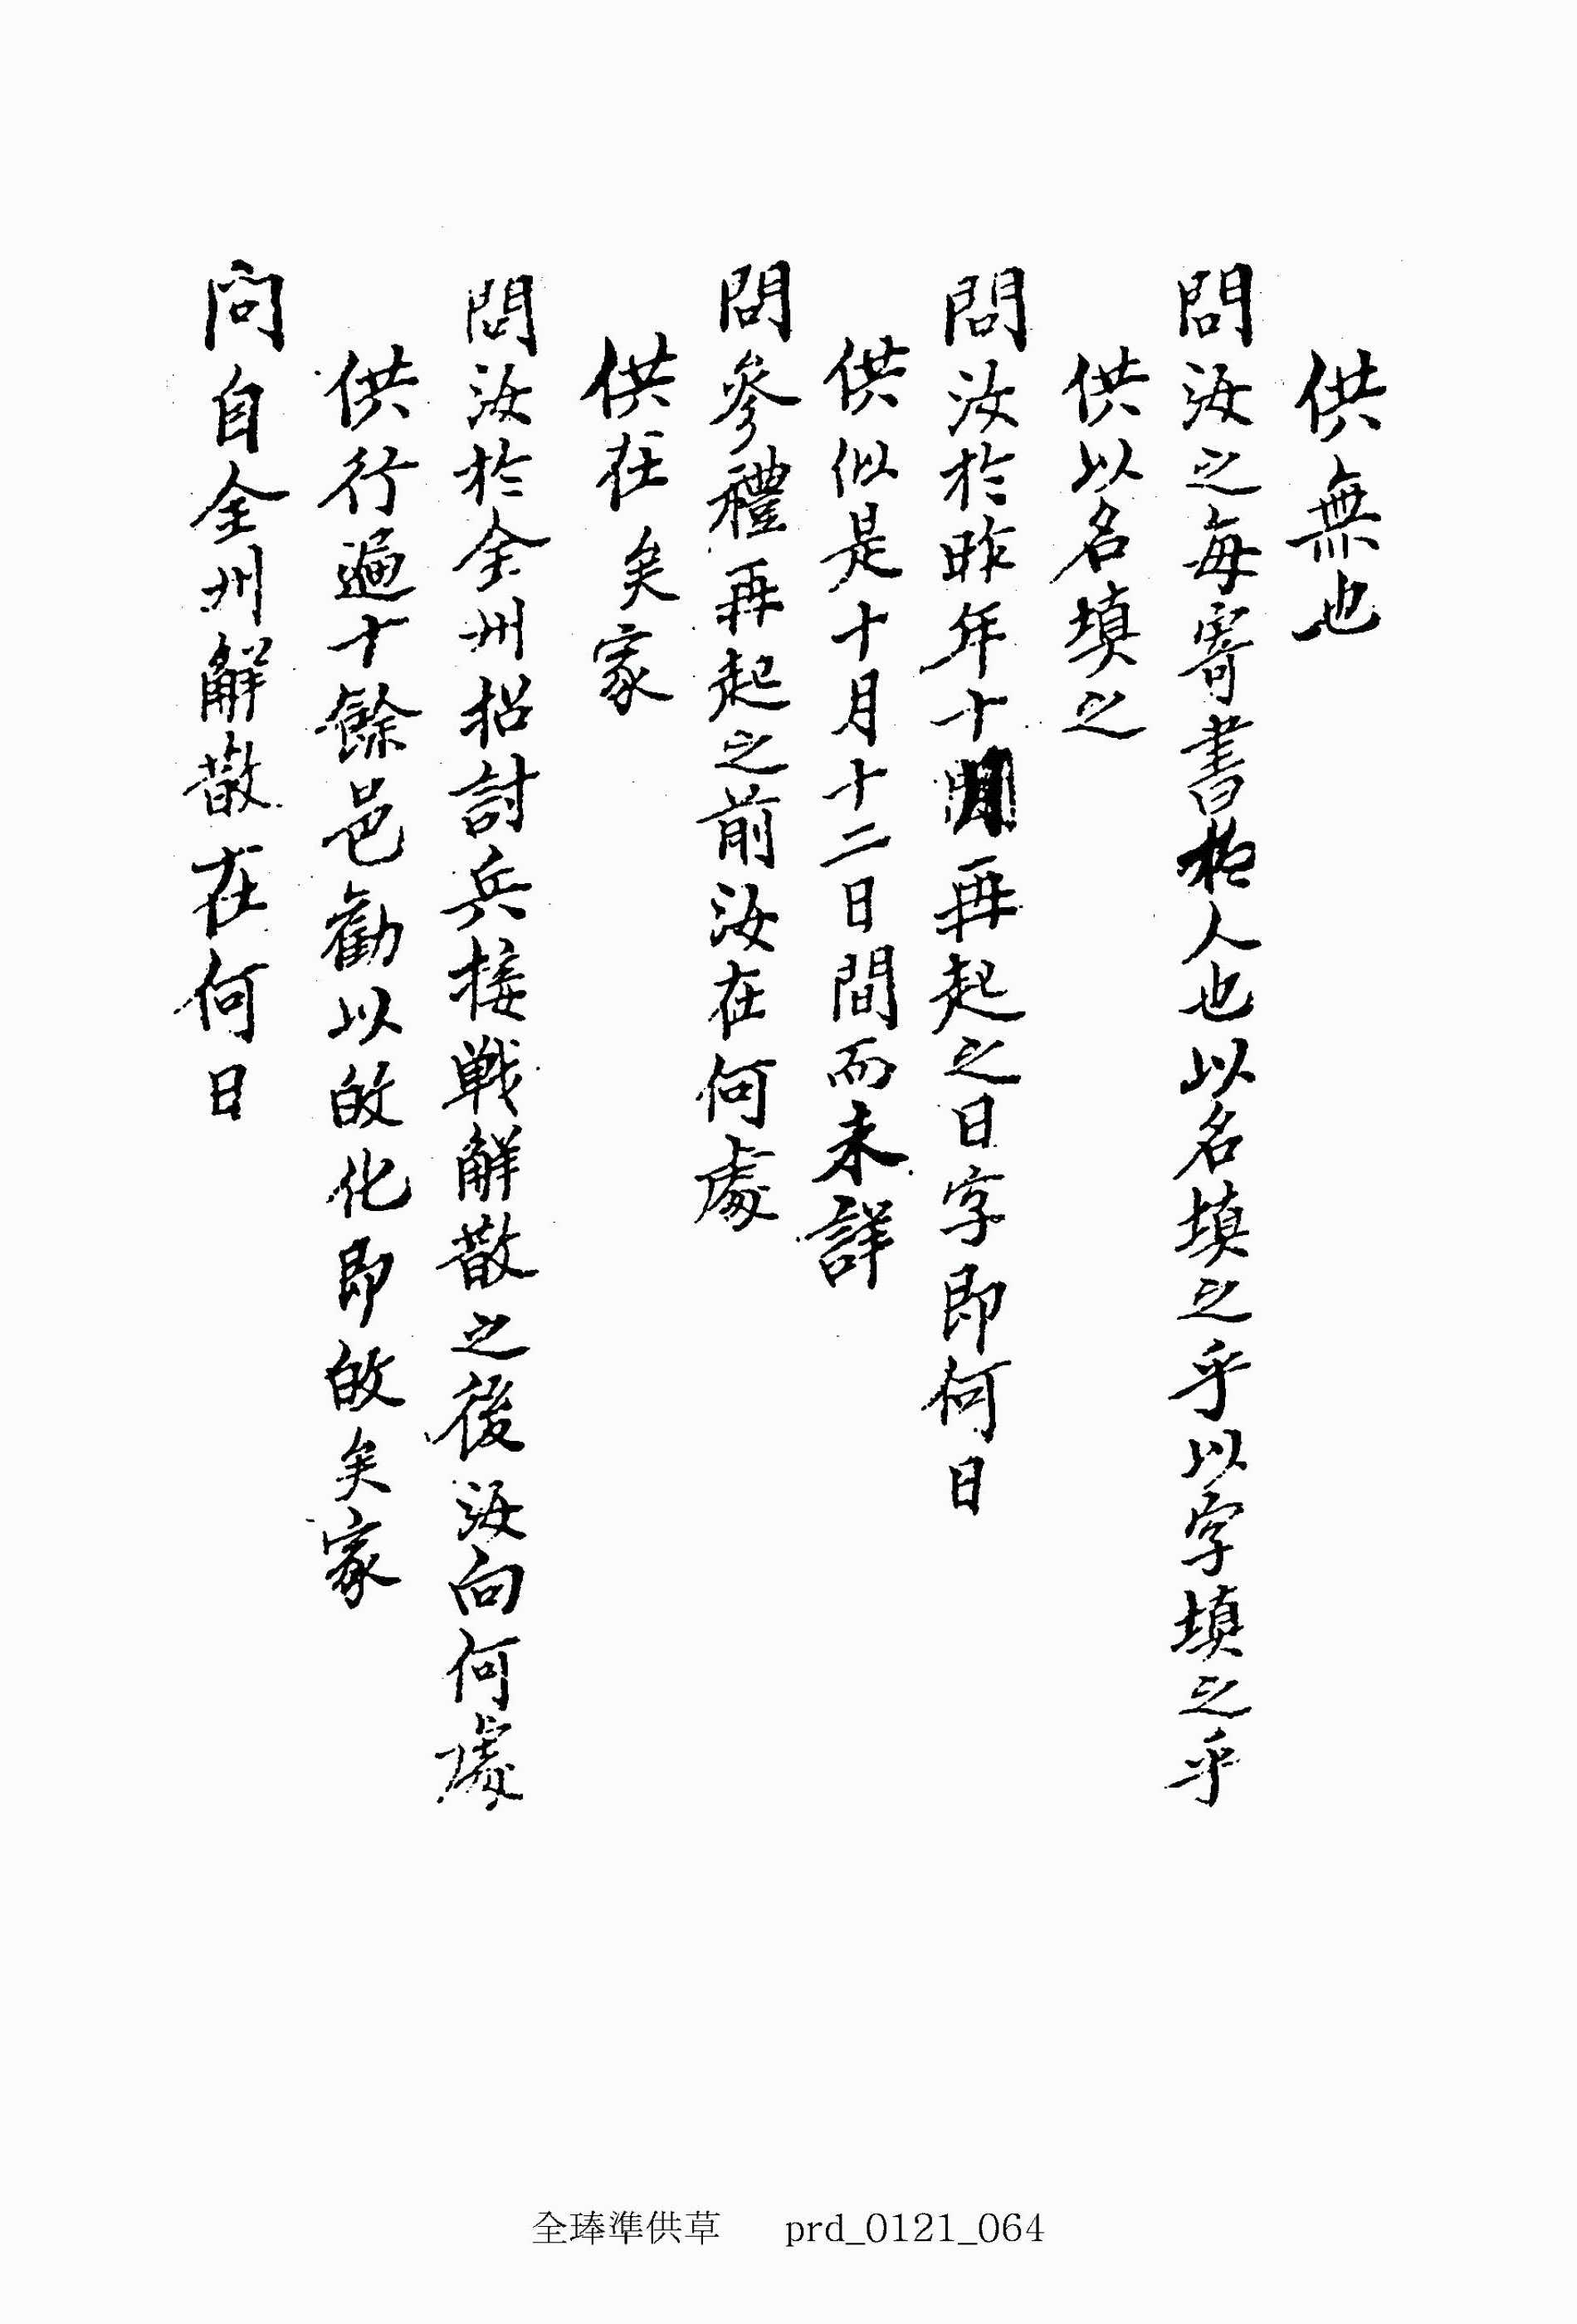 供無也
問汝之每寄書於人也以名填之乎以字填之乎
供以名填之
問汝於昨年十月再起之日字即何日
供似是十月十二日間而未詳
問參禮再起之前汝在何處
供在矣家
問汝於全州招討兵接戦解散之後汝向何處
供行遍十餘邑勸以皈化即皈矣家
問自全州解散在何日
全琫準供草 prd_0121_064